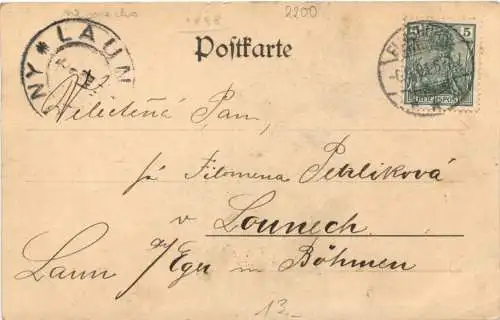 2200
NY * LAUN
Postkarte
5 5
REICHSPOST
Velectěná Pan,
pí Filomena Petzliková
v Lounech
Laun a/Eger in Böhmen
13.-